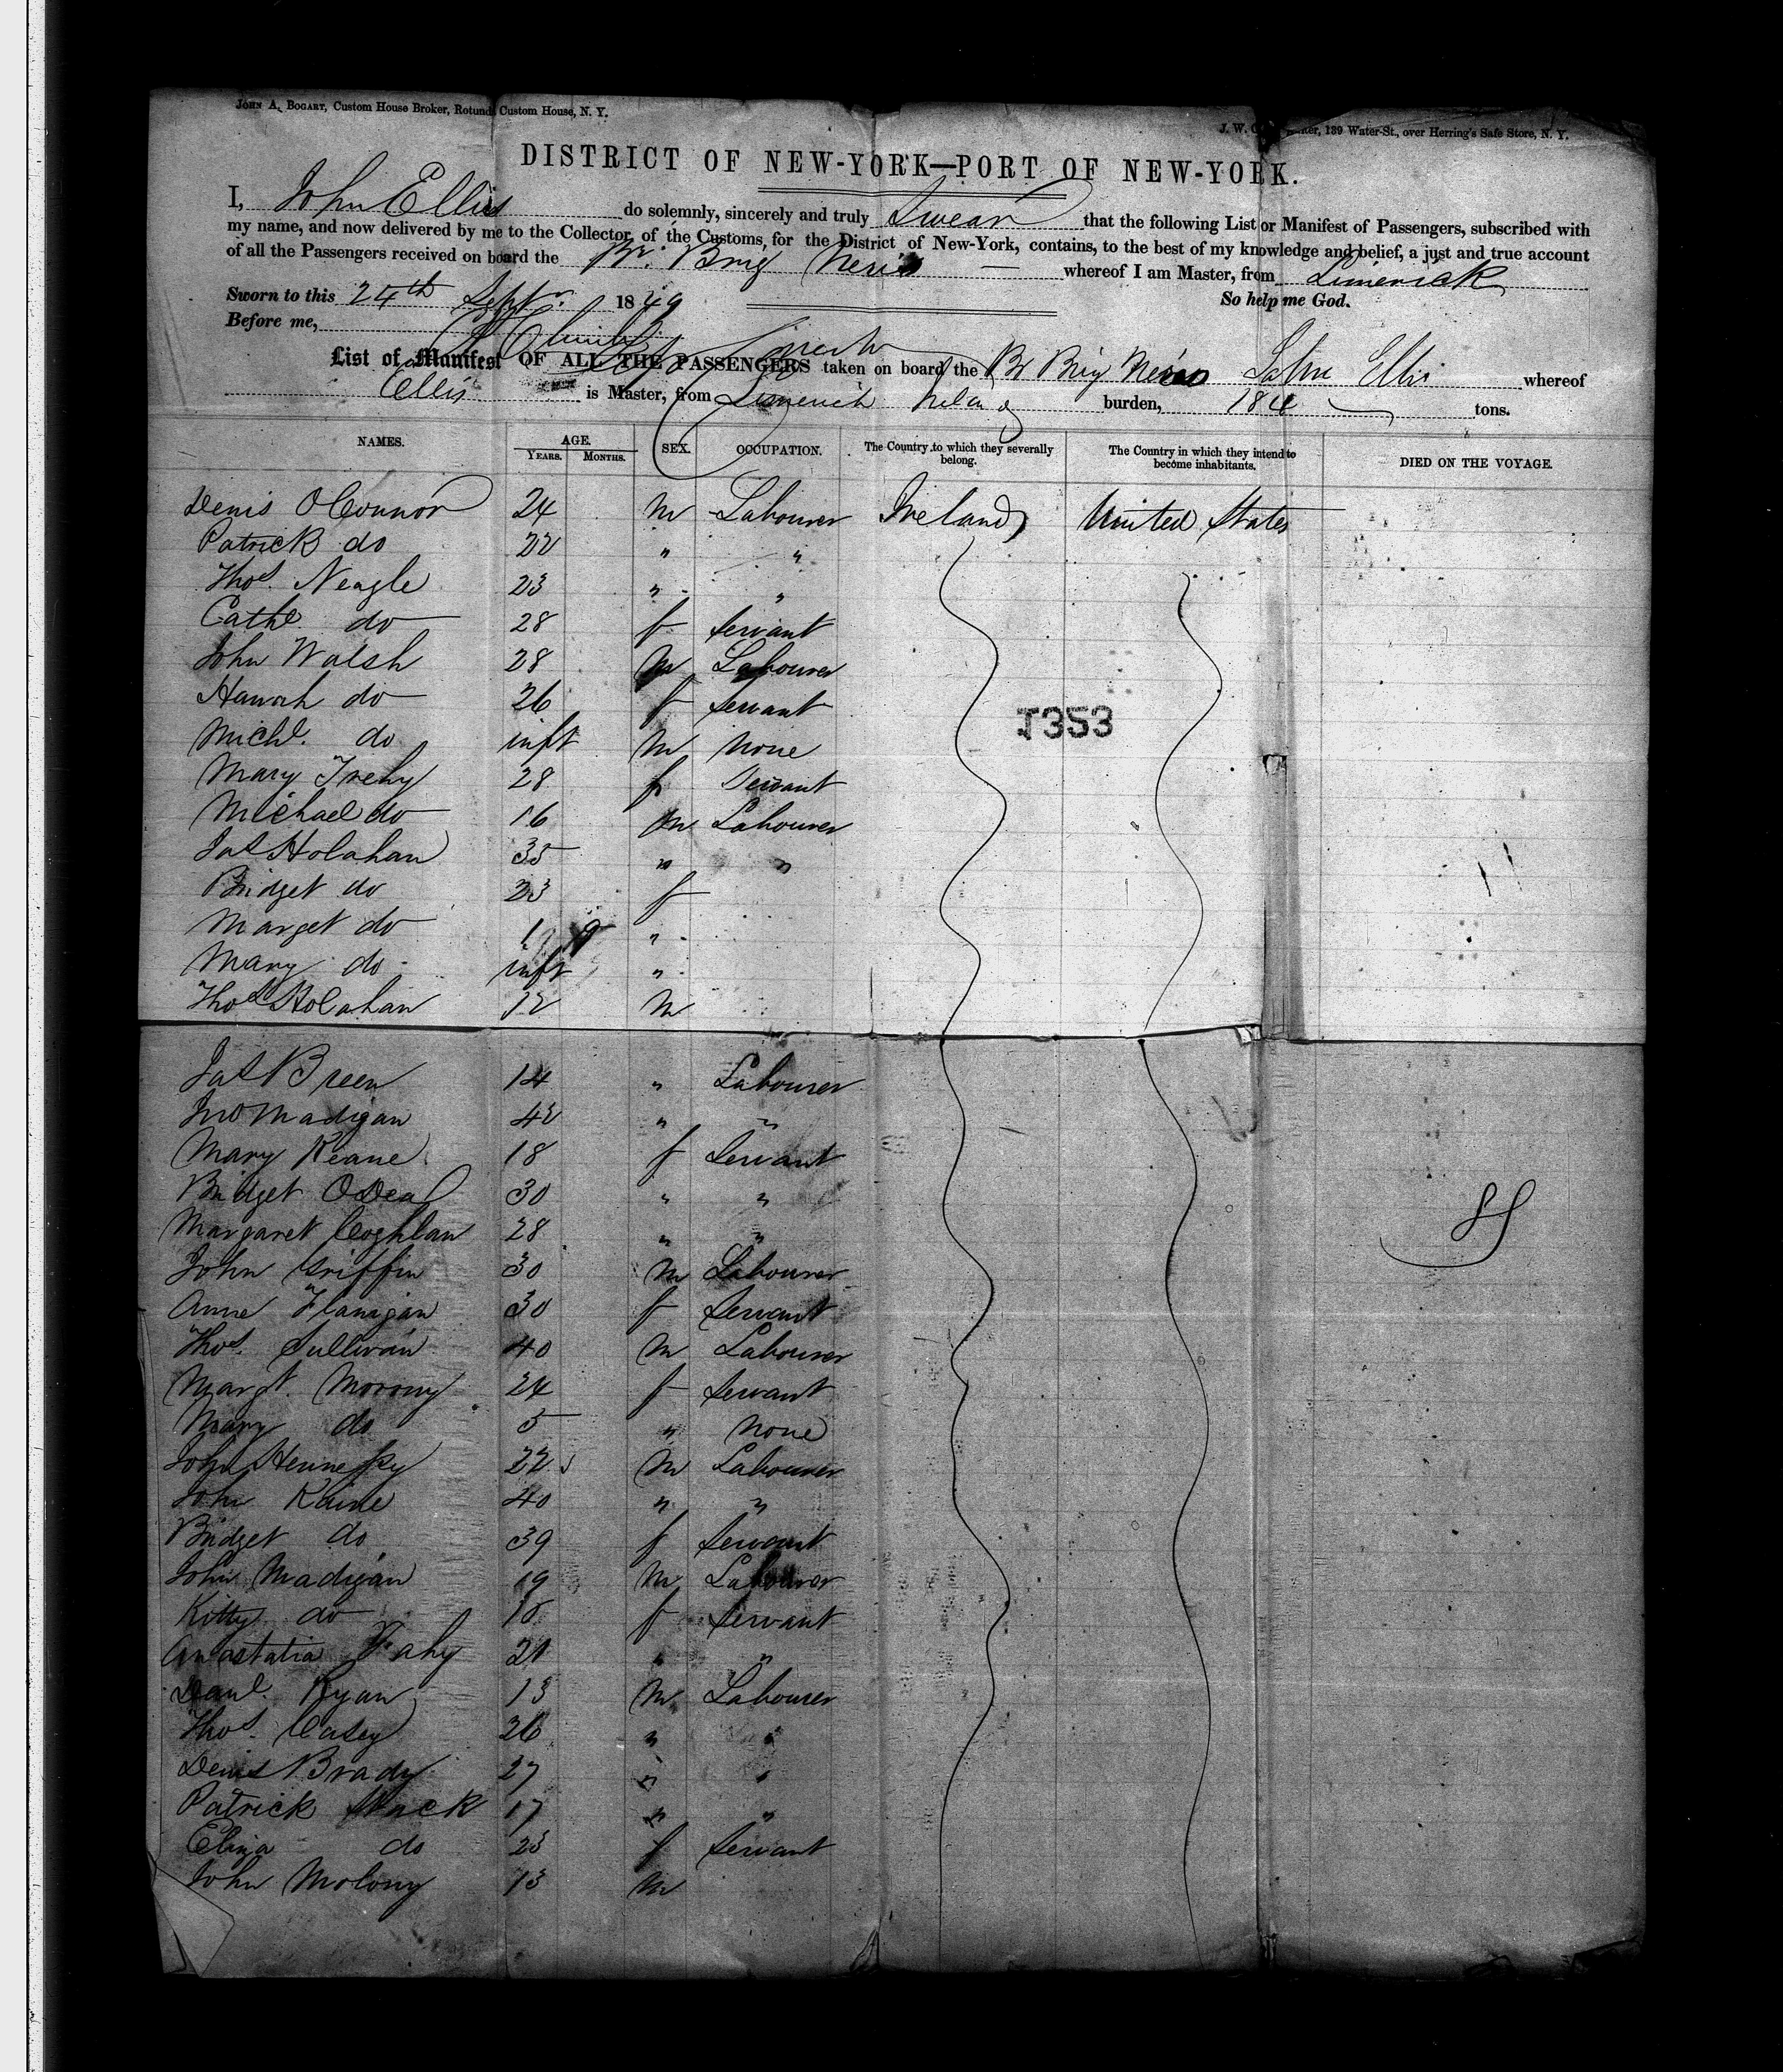 JOHN A. BOGART, Custom House Broker, Rotunda Custom House, N. Y.
J. W. 189 Water-St., over Herring's Safe Store, N. Y.
DISTRICT OF NEW-YORK—PORT OF NEW-YORK.
I, John Ellis do solemnly, sincerely and truly Swear that the following List or Manifest of Passengers, subscribed with
my name, and now delivered by me to the Collector of the Customs, for the District of New-York, contains, to the best of my knowledge and belief, a just and true account
of all the Passengers received on board the Br. Brig whereof I am Master, from Limerick
Sworn to this 24th Septr. 1849 So help me God.
Before me,
List of Manifest OF ALL THE PASSENGERS taken on board the Br Brig John Ellis whereof
Ellis is Master, from Limerick burden, tons.
NAMES. AGE. YEARS. MONTHS. SEX. OCCUPATION. The Country to which they severally belong. The Country in which they intend to become inhabitants. DIED ON THE VOYAGE.
Denis OConnor 24 M Labourer Ireland United States
Patrick do 22 " "
Thos. Neagle 23 " "
Cathe do 28 f Servant
John Walsh 28 M Labourer
Hanah do 26 f Servant
Michl. do inft M None
Mary Trehy 28 f Servant
Michael do 16 M Labourer
T353
Jas Holahan 35 " "
Bridget do 23 f
Marget do 1 "
Mary do inft "
Thos Holahan 12 M
Jas Breen 14 " Labourer
Jno Madigan 42 " "
Mary Keane 18 f Servant
Bridget ODea 30 " "
Margaret Coghlan 28 " "
John Griffin 30 M Labourer
Anne Flanigan 30 f Servant
Thos. Sullivan 40 M Labourer
Margt. Morony 24 f Servant
Mary do 5 " None
John Hennessy 22 M Labourer
John Kaine 40 " "
Bridget do 39 f Servant
John Madigan 19 M Labourer
Kitty do 18 f Servant
Anastatia Fahy 21 " "
Danl. Ryan 13 M Labourer
Thos. Casey 26 " "
Denis Brady 27 " "
Patrick Stack 17 " "
Eliza do 23 f Servant
John Molony 13 M